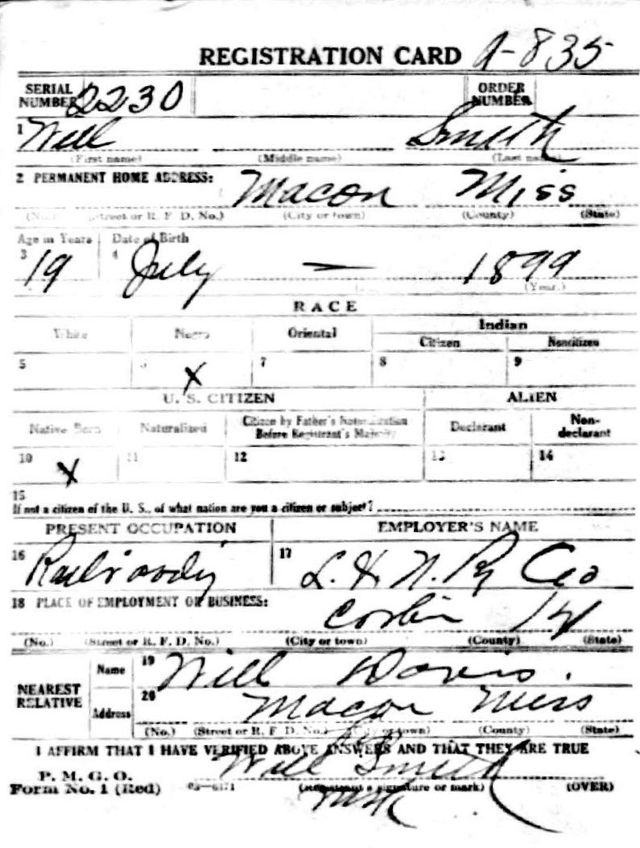 REGISTRATION CARD A-835
SERIAL NUMBER 2230 ORDER NUMBER
1 Will Smith
(First name) (Middle name) (Last name)
2 PERMANENT HOME ADDRESS: Macon Miss
(No.) (Street or R. F. D. No.) (City or town) (County) (State)
Age in Years Date of Birth
3 19 4 July — 1899
(Year.)
RACE
White Negro Oriental Indian
Citizen Noncitizen
5 6 X 7 8 9
U. S. CITIZEN ALIEN
Native Born Naturalized Citizen by Father's Naturalization Before Registrant's Majority Declarant Non-declarant
10 X 11 12 13 14
15
If not a citizen of the U. S., of what nation are you a citizen or subject?
PRESENT OCCUPATION EMPLOYER'S NAME
16 Railroading 17 L. & N. Ry Co
18 PLACE OF EMPLOYMENT OR BUSINESS:
Corbin Ky
(No.) (Street or R. F. D. No.) (City or town) (County) (State)
NEAREST RELATIVE
Name 19 Will Davis.
Address 20 Macon Miss
(No.) (Street or R. F. D. No.) (City or town) (County) (State)
I AFFIRM THAT I HAVE VERIFIED ABOVE ANSWERS AND THAT THEY ARE TRUE
P. M. G. O.
Form No. 1 (Red) 03-6171 Will Smith
(Registrant's signature or mark) (OVER)
mark